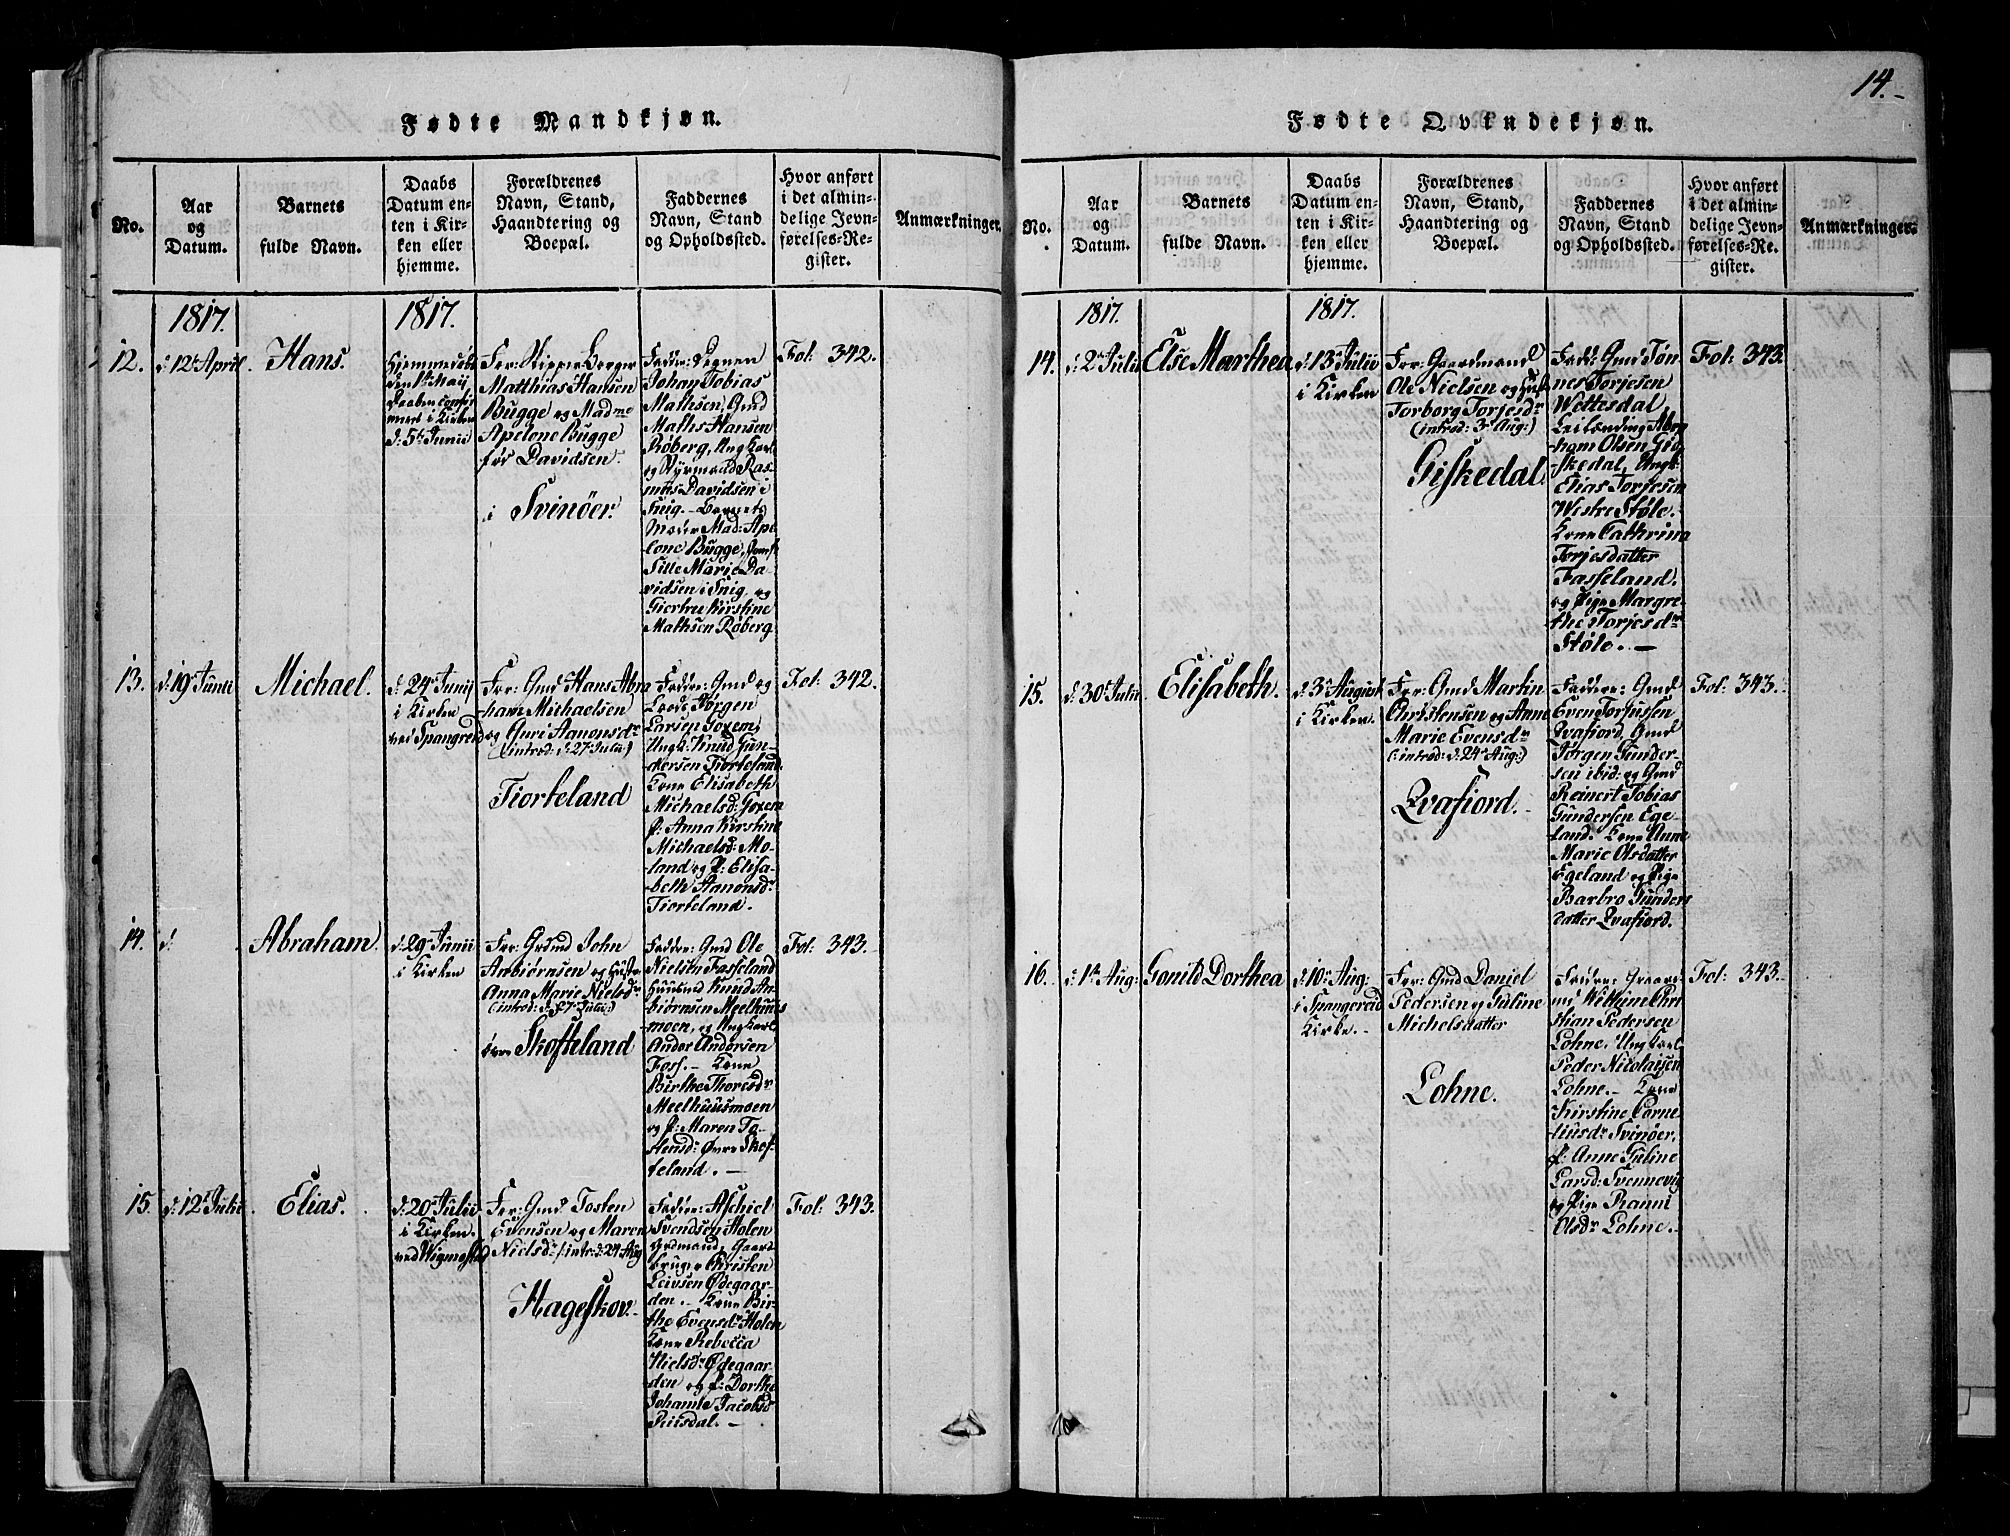 14.-
Fødte Mandkjøn.
No.
Aar
og
Datum.
Barnets
fulde Navn.
Daabs
Datum en-
ten i Kir-
ken eller
hjemme.
Forældrenes
Navn, Stand,
Haandtering og
Boepæl.
Faddernes
Navn, Stand
og Opholdssted.
Hvor anført
i det almin-
delige Jevn-
førelses-Re-
gister.
Anmærkninger.
1817.
1817.
12.
d: 12te April
Hans.
Hjemmedøbt
den 1te May
Daaben confir
meret i Kirken
d: 5te Junii
For: Skipper Borger
Matthias Hansen
Bugge og Madme
Apelone Bugge
fød Davidsen
i Svinöer.
Faddere:
Johan Tobias
Mathsen, Gmd
Maths Hansen
Röberg, Ungkarl
og Styrmand Ras-
mus Davidsen i
Snig. - Barnets
Moder Mad: Ape
lone Bugge, Jomf
Sille Marie Da-
vidsen i Snig og
Giertru Kirstine
Mathsen Röberg
Fol: 342.
13.
d: 19de Junii
Michael.
d: 24de Junii
i Kirken
ved Spangreid
For: Gmd Hans Abra
ham Michaelsen
og Guri Aamonsdr
(introd: d: 27de Julii:)
Fiorteland
Faddere: Gmd og
Jörgen
Larsen Goxem
Ungk: Knud Gun-
dersen Fiorteland
Kone Elisabeth
Michaelsd: Goxem
p: Anna Kirstine
Michaelsd: Mo-
land og p: Elisa-
beth Aamonsdr
Fiorteland.
Fol: 342.
14.
d:
Abraham.
d: 29de Junii
i Kirken
For: Grdmd John
Anbiörnsen og Hustr
Anna Marie Nielsdr
(introd: d. 27de Julii:)
övre Skofteland
Faddere: Gmd Ole
Nielsen Fasseland
Huusmd Knud An-
biörnsen Meelhuus
moen, og Ungkarl
Ander Andersen
Foss. - Kone
Birthe Thoresdr
Meelhuusmoen
og p: Maren To-
stensd: Övre Skof-
teland. -
Fol: 343.
15.
d: 12te Julii
Elias.
d: 20de Julii
i Kirken
ved Wigmostad
For: Gmd Tosten
Evensen og Maren
Nielsdr (introd: 24 Aug
Hageskov.-
Faddere: Aschiel
Svendsen Holen
Grdmand, Gaard
bruger Christen
Leivsen Ödegaar-
den. - Kone Bir-
the Evensdr Holen
Kone Rebecca
Nielsdr Ödegaar-
den og p: Dorthe
Johanne Jacobsd
Riisdal. -
Fol: 343.
Fødte Qvindekjøn.
No.
Aar
og
Datum.
Barnets
fulde Navn.
Daabs
Datum en-
ten i Kir-
ken eller
hjemme.
Forældrenes
Navn, Stand,
Haandtering og
Boepæl.
Faddernes
Navn, Stand
og Opholdssted.
Hvor anført
i det almin-
delige Jevn-
førelses-Re-
gister.
Anmærkninger.
1817.
1817.
14.
d: 2den Julii
Else Marthea
d: 13de Julii
i Kirken
For: Gaardmand
Ole Nielsen og Hust
Torborg Torjesdr
(introd: 3de Aug:)
Giskedal
Fadd: Gmd Tön
nes Torjesen
Wettesdal
Abra
ham Olsen Gis-
skedal, Ungk:
Elias Torjesen
Westre Stöle.
Kone Cathrina
Torjesdatter
Fasseland.
og Pige Margre-
the Torjesdr
Stöle. -
Fol: 343.
15.
d: 30te Julii
Elisabeth.
d: 3de August
i Kirken.
For: Gmd Martin
Christensen og Anne
Marie Evensdr
(:introd: d: 24de Aug:)
Qvafiord.
Faddere: Gmd
Even Torjussen
Qvafiord, Gmd
Jörgen Gunder-
sen ibid: og Gmd
Reinert Tobias
Gundersen Ege-
land. Kone Anne
Marie Olsdatter
Egeland og Pige
Barbro Gunders
datter Qvafiord.
Fol: 343.
16.
d: 1te Aug:
Gonild Dorthea
d: 10de Aug:
i Spangereid
Kirke.-
For: Gmd Daniel
Pedersen og Guline
Michelsdatter
Lohne.
Faddere: Gaard
md Wilhelm Chri
stian Pedersen
Lohne. Ungkarl
Peder Nicolaisen
Lohne.- Kone
Kirstine Corne
liusdr Svinöer,
p: Anne Guline
Larsd: Svennevig
og Pige Ranni
Olsdr Lohne.-
Fol: 343.